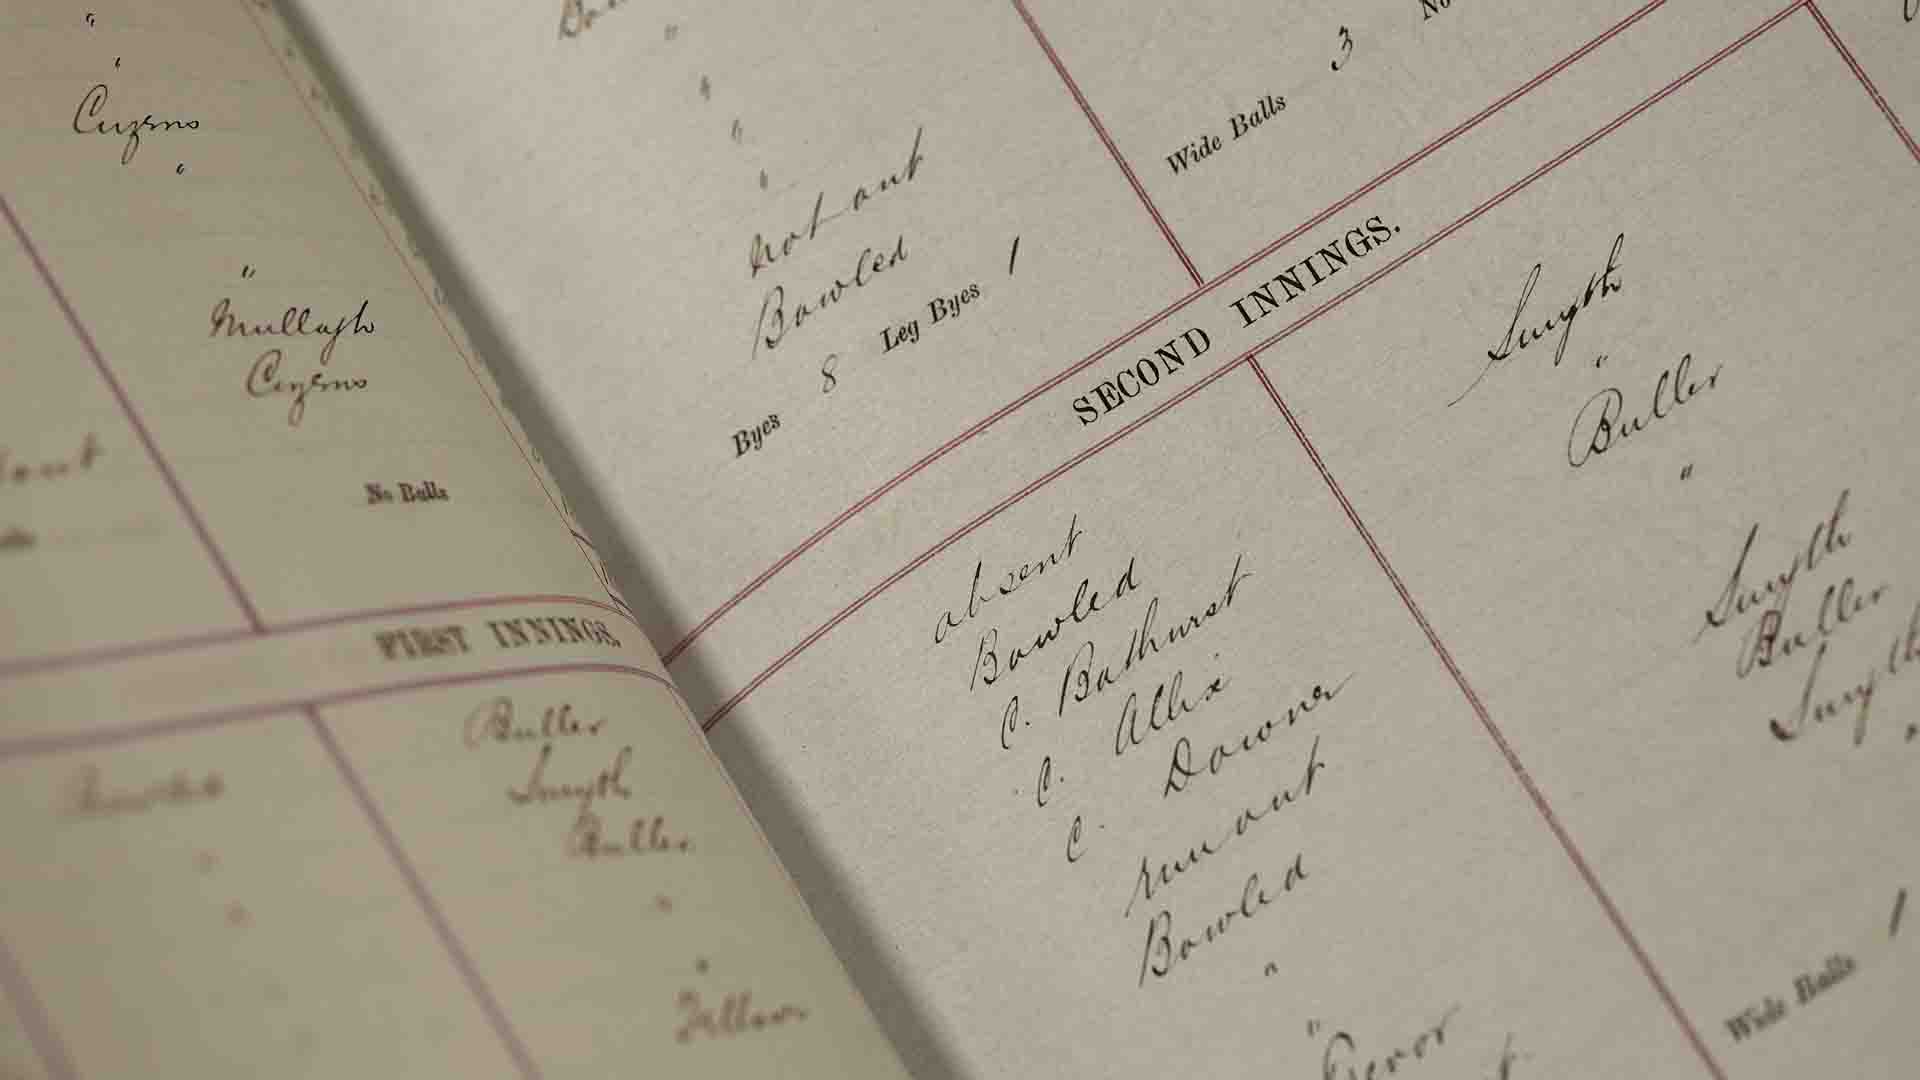 "
"
Cuzens
"
"
Mullagh
Cuzens
No Balls
FIRST INNINGS.
Buller
Smyth
Buller
"
"
"
"
"
"
"
"
not out
Bowled
Byes 8 Leg Byes 1
Wide Balls 3 No
SECOND INNINGS.
absent
Bowled Smyth
C. Bathurst "
C. Allix Buller
C. Downer "
run out
Bowled Smyth
" Buller
" Smyth
Trevor "
Wide Balls 1